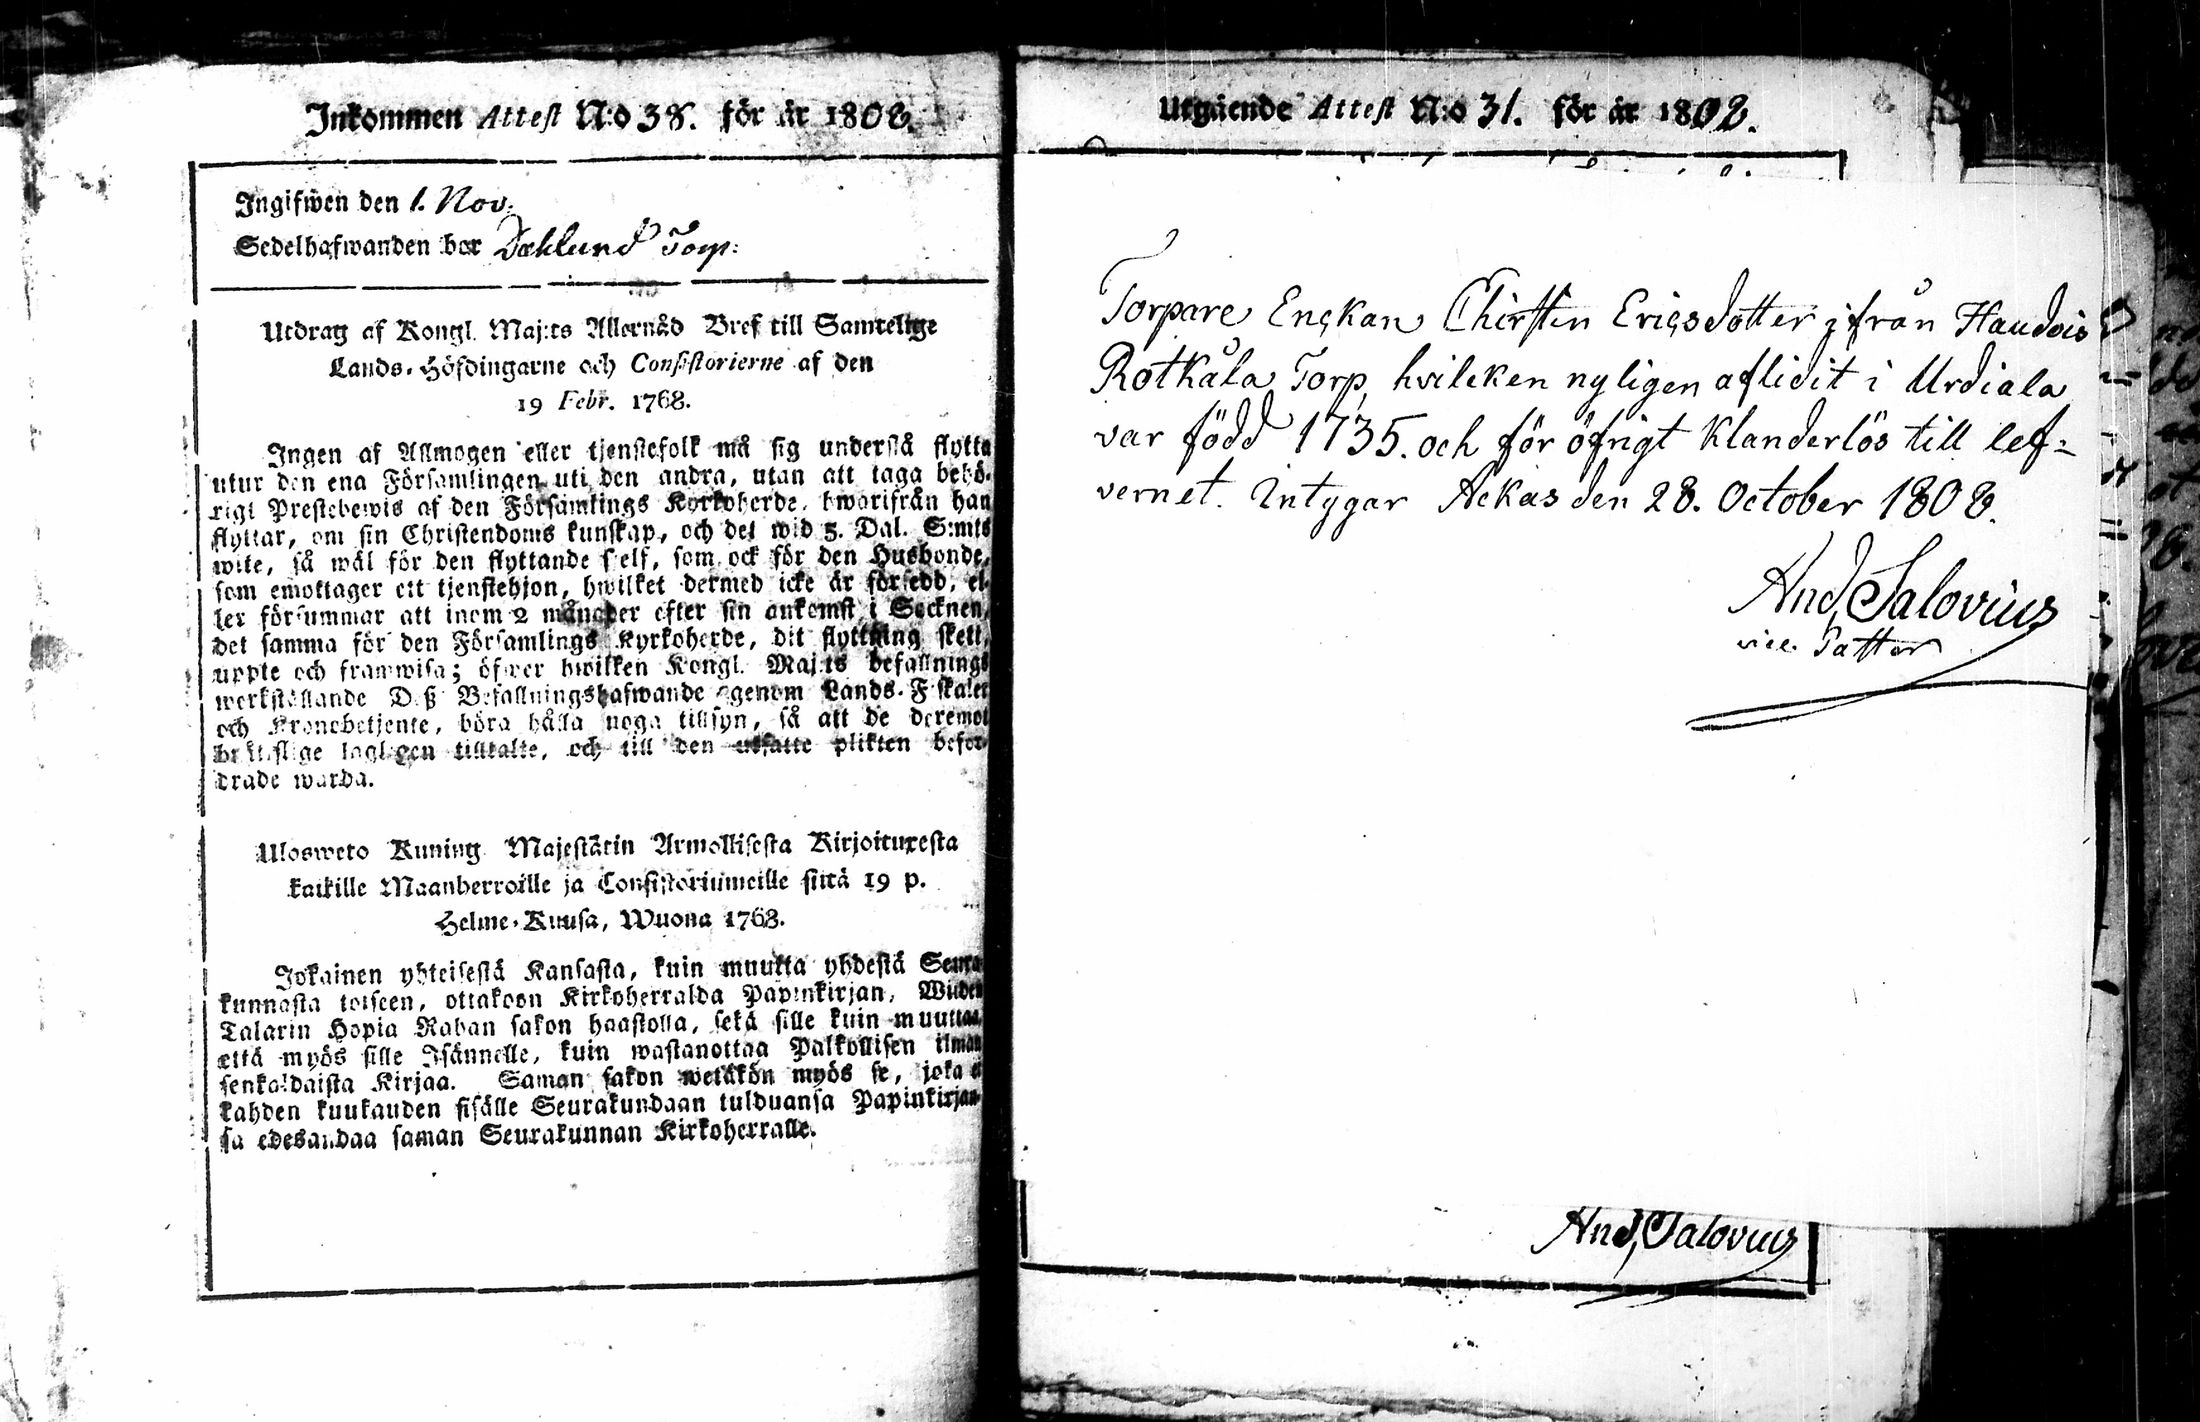 Inkommen Attest N:o 38. för år 1808.
Ingifwen den 1. Nov.
Sedelhafwanden bor Dahlund Torp:
Utdrag af Kongl. Maj:ts Allernåd Bref till Samtelige
Lands-Höfdingarne och Consistorierne af den
19 Febr. 1768.
Ingen af Allmogen eller tjenstefolk må sig understå flytta
utur den ena Församlingen uti den andra, utan att taga behö-
rigt Prestebewis af den Församlings Kyrkoherde, hwarifrån han
flyttar, om sin Christendoms kunskap, och det wid 5. Dal. S:mts
wite, så wäl för den flyttande sielf, som ock för den Husbonde,
som emottager ett tjenstehjon, hwilket dermed icke är försedd, el-
ler försummar att inom 2 månader efter sin ankomst i Socknen,
det samma för den Församlings Kyrkoherde, dit flyttning skett,
uppte och framwisa; öfwer hwilken Kongl. Maj:ts befallnings
werkställande Deß Befallningshafwande genom Lands-Fiskaler
och Kronobetjente, böra hålla noga tillsyn, så att de deremot
bråtslige lagligen tilltalte, och till den utsatte plikten befor-
drade warda.
Ulosweto Kuning. Majestätin Armollisesta Kirjoituxesta
kaikille Maanherroille ja Consistoriumeille siitä 19 p.
Helme-Kuusa, Wuona 1768.
Jokainen yhteisestä Kansasta, kuin muutta yhdestä Seura-
kunnasta toiseen, ottakoon Kirkoherralda Papinkirjan, Wiiden
Talarin Hopia Rahan sakon haastolla, sekä sille kuin muuttaa,
että myös sille Isännelle, kuin wastanottaa Palkollisen ilman
senkaldaista Kirjaa. Saman sakon wetäkön myös se, joka ei
kahden kuukauden sisälle Seurakundaan tulduansa Papinkirjaan-
sa edesandaa saman Seurakunnan Kirkoherralle.
Utgående Attest N:o 31. för år 1808.
Torpare Enckan Chirstin Ericsdotter ifrån Haudois
Rotkåla Torp, hvilcken nyligen aflidit i Urdiala
var född 1735. och för öfrigt klanderlös till lef-
vernet. Intygar Ackas den 28. October 1808.
And, Salovius
vice Pastor
And, Salovius